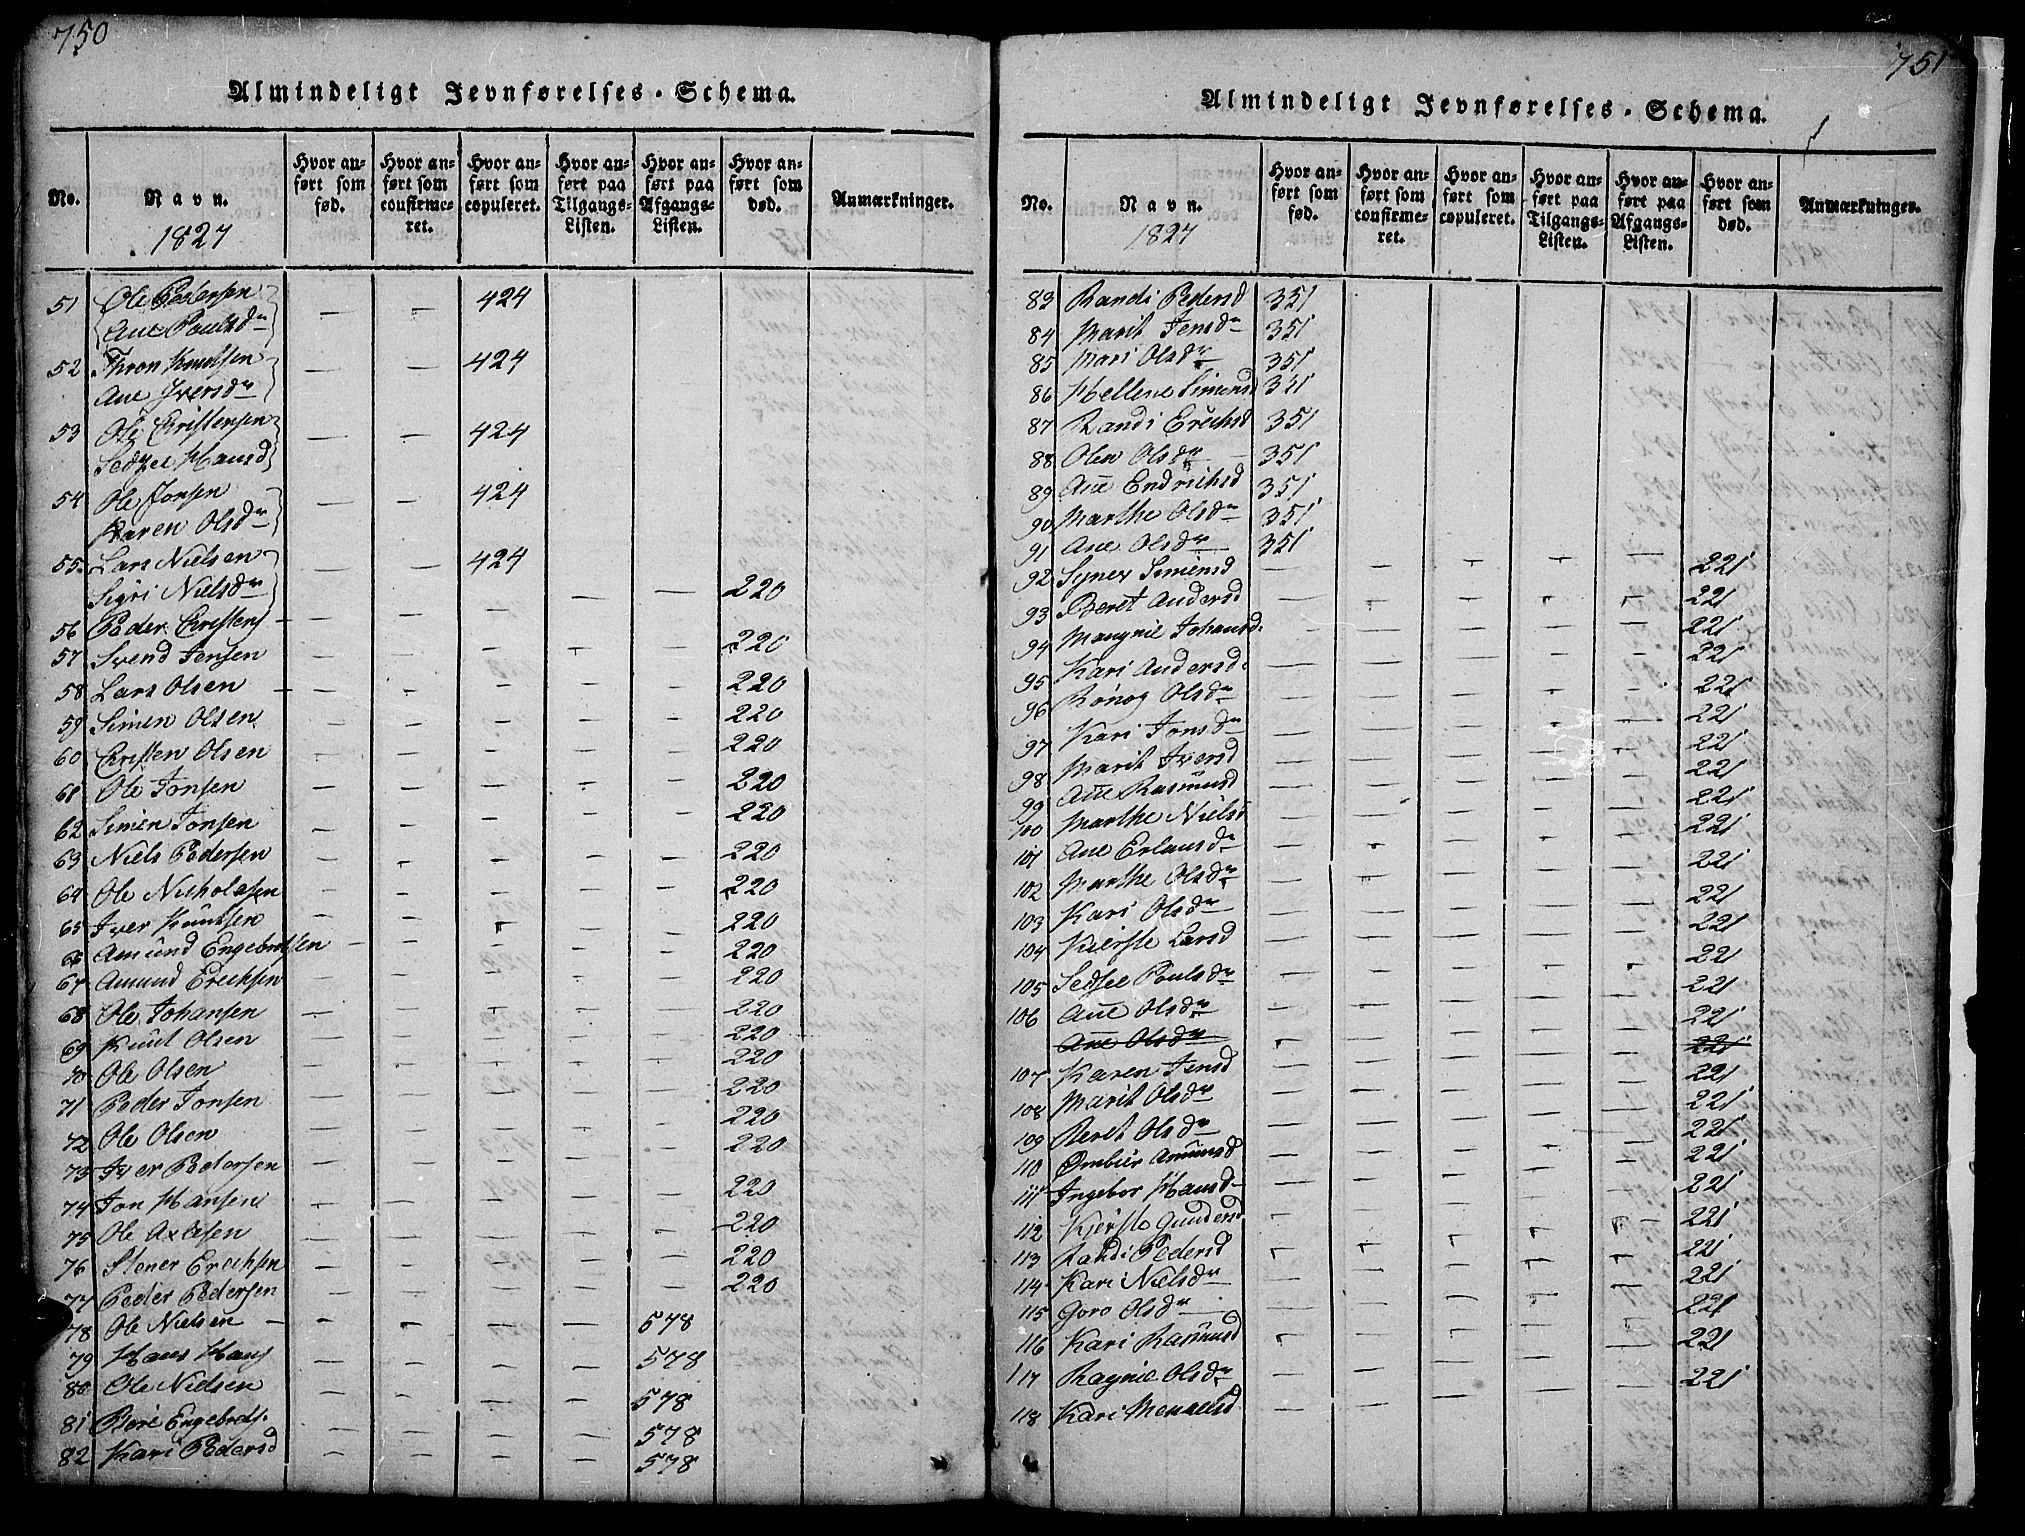 750
Almindeligt Jevnførelses-Schema.
No. Navn. Hvor anført som fød. Hvor anført som confirmeret. Hvor anført som copuleret. Hvor anført paa Tilgangs-Listen. Hvor anført paa Afgangs-Listen. Hvor anført som død. Anmærkninger.
1827
51 Ole Pedersen — — 424
Ane Poulsdr
52 Thron Knudsen — — 424
Ane Iversdr
53 Ole Christensen — — 424
Sedzel Hansd
54 Ole Jonsen — — 424
Karen Olsdr
55 Lars Nielsen — — 424
Sigri Nielsdr
56 Peder Christens — — — — — 220
57 Svend Jensen — — — — — 220
58 Lars Olsen — — — — — 220
59 Simen Olsen — — — — — 220
60 Christen Olsen — — — — — 220
61 Ole Jonsen — — — — — 220
62 Simen Jonsen — — — — — 220
63 Niels Pedersen — — — — — 220
64 Ole Nicholasen — — — — — 220
65 Iver Knutsen — — — — — 220
66 Amund Engebretsen — — — — — 220
67 Amund Erichsen — — — — — 220
68 Ole Johansen — — — — — 220
69 Knut Olsen — — — — — 220
70 Ole Olsen — — — — — 220
71 Peder Jonsen — — — — — 220
72 Ole Olsen — — — — — 220
73 Iver Pedersen — — — — — 220
74 Jon Hansen — — — — — 220
75 Ole Axlesen — — — — — 220
76 Stener Erichsen — — — — — 220
77 Peder Pedersen — — — — — 220
78 Ole Nielsen — — — — 578
79 Hans Hans — — — — 578
80 Ole Nielsen — — — — 578
81 Engebrets. — — — — 578
82 Kari Pedersd — — — — 578
751
Almindeligt Jevnførelses-Schema.
No. Navn. Hvor anført som fød. Hvor anført som confirmeret. Hvor anført som copuleret. Hvor anført paa Tilgangs-Listen. Hvor anført paa Afgangs-Listen. Hvor anført som død. Anmærkninger.
1827
83 Randi Pedersd 351
84 Marit Jensdr 351
85 Mari Olsdr 351
86 Hellene Simensd 351
87 Randi Erichsd 351
88 Olen Olsdr 351
89 Ane Endrichsd 351
90 Marthe Olsdr 351
91 Ane Olsdr 351
92 Syner Simensd — — — — — 221
93 Beret Andersd — — — — — 221
94 Mangnil Johansd. — — — — — 221
95 Kari Andersd. — — — — — 221
96 Rønog Olsdr — — — — — 221
97 Kari Jonsdr — — — — — 221
98 Marit Iversd — — — — — 221
99 Ane Rasmusd — — — — — 221
100 Marthe Nielsd — — — — — 221
101 Ane Erlansdr — — — — — 221
102 Marthe Olsdr — — — — — 221
103 Kari Olsdr — — — — — 221
104 Kierste Larsd — — — — — 221
105 Sedsel Poulsdr — — — — — 221
106 Ane Olsdr — — — — — 221
Ane Olsdr 221
107 Karen Jensd — — — — — 221
108 Marit Olsdr — — — — — 221
109 Beret Olsdr — — — — — 221
110 Ombiør Amunsd — — — — — 221
111 Ingebor Hansd — — — — — 221
112 Kjerste Gundersd — — — — — 221
113 Randi Pedersd — — — — — 221
114 Kari Nielsdr — — — — — 221
115 Goro Olsdr — — — — — 221
116 Kari Rasmusd — — — — — 221
117 Ragnil Olsdr — — — — — 221
118 Kari — — — — — 221